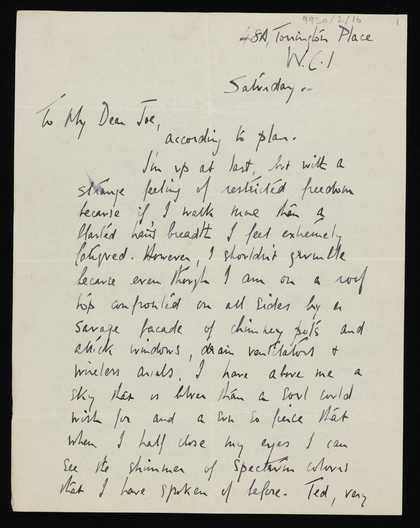 9920/2/16
1
48A Torrington Place
W.C.1
Saturday.
To My Dear Joe,
according to plan.
I'm up at last, but with a
strange feeling of restricted freedom
because if I walk more than a
blasted hair's breadth I feel extremely
fatigued. However, I shouldn't grumble
because even though I am on a roof
top confronted on all sides by a
savage facade of chimney pots and
attick windows, drain ventilators &
wireless arials, I have above me a
sky that is bluer than a soul could
wish for and a sun so fierce that
when I half close my eyes I can
see the shimmer of spectrum colours
that I have spoken of before. Ted, very